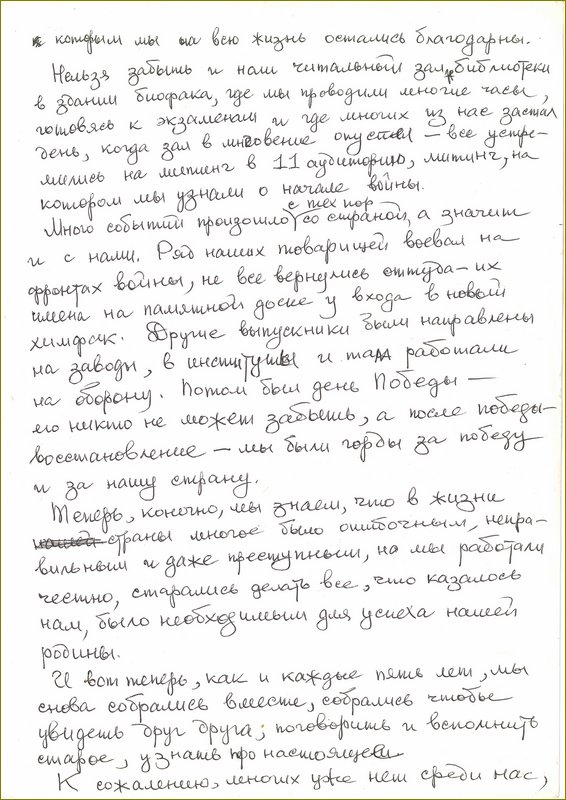 которым мы на всю жизнь остались благодарны.
Нельзя забыть и наш читальный зал библиотеки
в здании биофака, где мы проводили многие часы,
готовясь к экзаменам и где многих из нас застал
день, когда зал в мгновение опустел – все устре-
мились на митинг в 11 аудиторию, митинг, на
котором мы узнали о начале войны.
с тех пор
Много событий произошло со страной, а значит
и с нами. Ряд наших товарищей воевал на
фронтах войны, не все вернулись оттуда – их
имена на памятной доске у входа в новый
химфак. Другие выпускники были направлены
на заводы, в институты и там работали
на оборону. Потом был день Победы —
его никто не может забыть, а после победы –
восстановление – мы были горды за победу
и за нашу страну.
Теперь, конечно, мы знаем, что в жизни
нашей страны многое было ошибочным, непра-
вильным и даже преступным, но мы работали
честно, старались делать все, что казалось
нам, было необходимым для успеха нашей
родины.
И вот теперь, как и каждые пять лет, мы
снова собрались вместе, собрались чтобы
увидеть друг друга; поговорить и вспомнить
старое, узнать про настоящее.
К сожалению, многих уже нет среди нас,